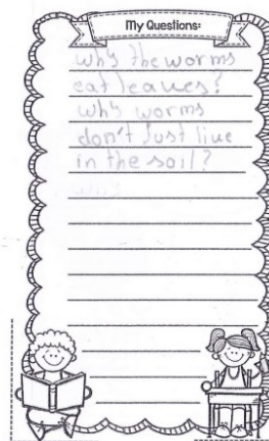 My Questions:
why the worms
eat leaves?
why worms
don't Just live
in the soil?
why